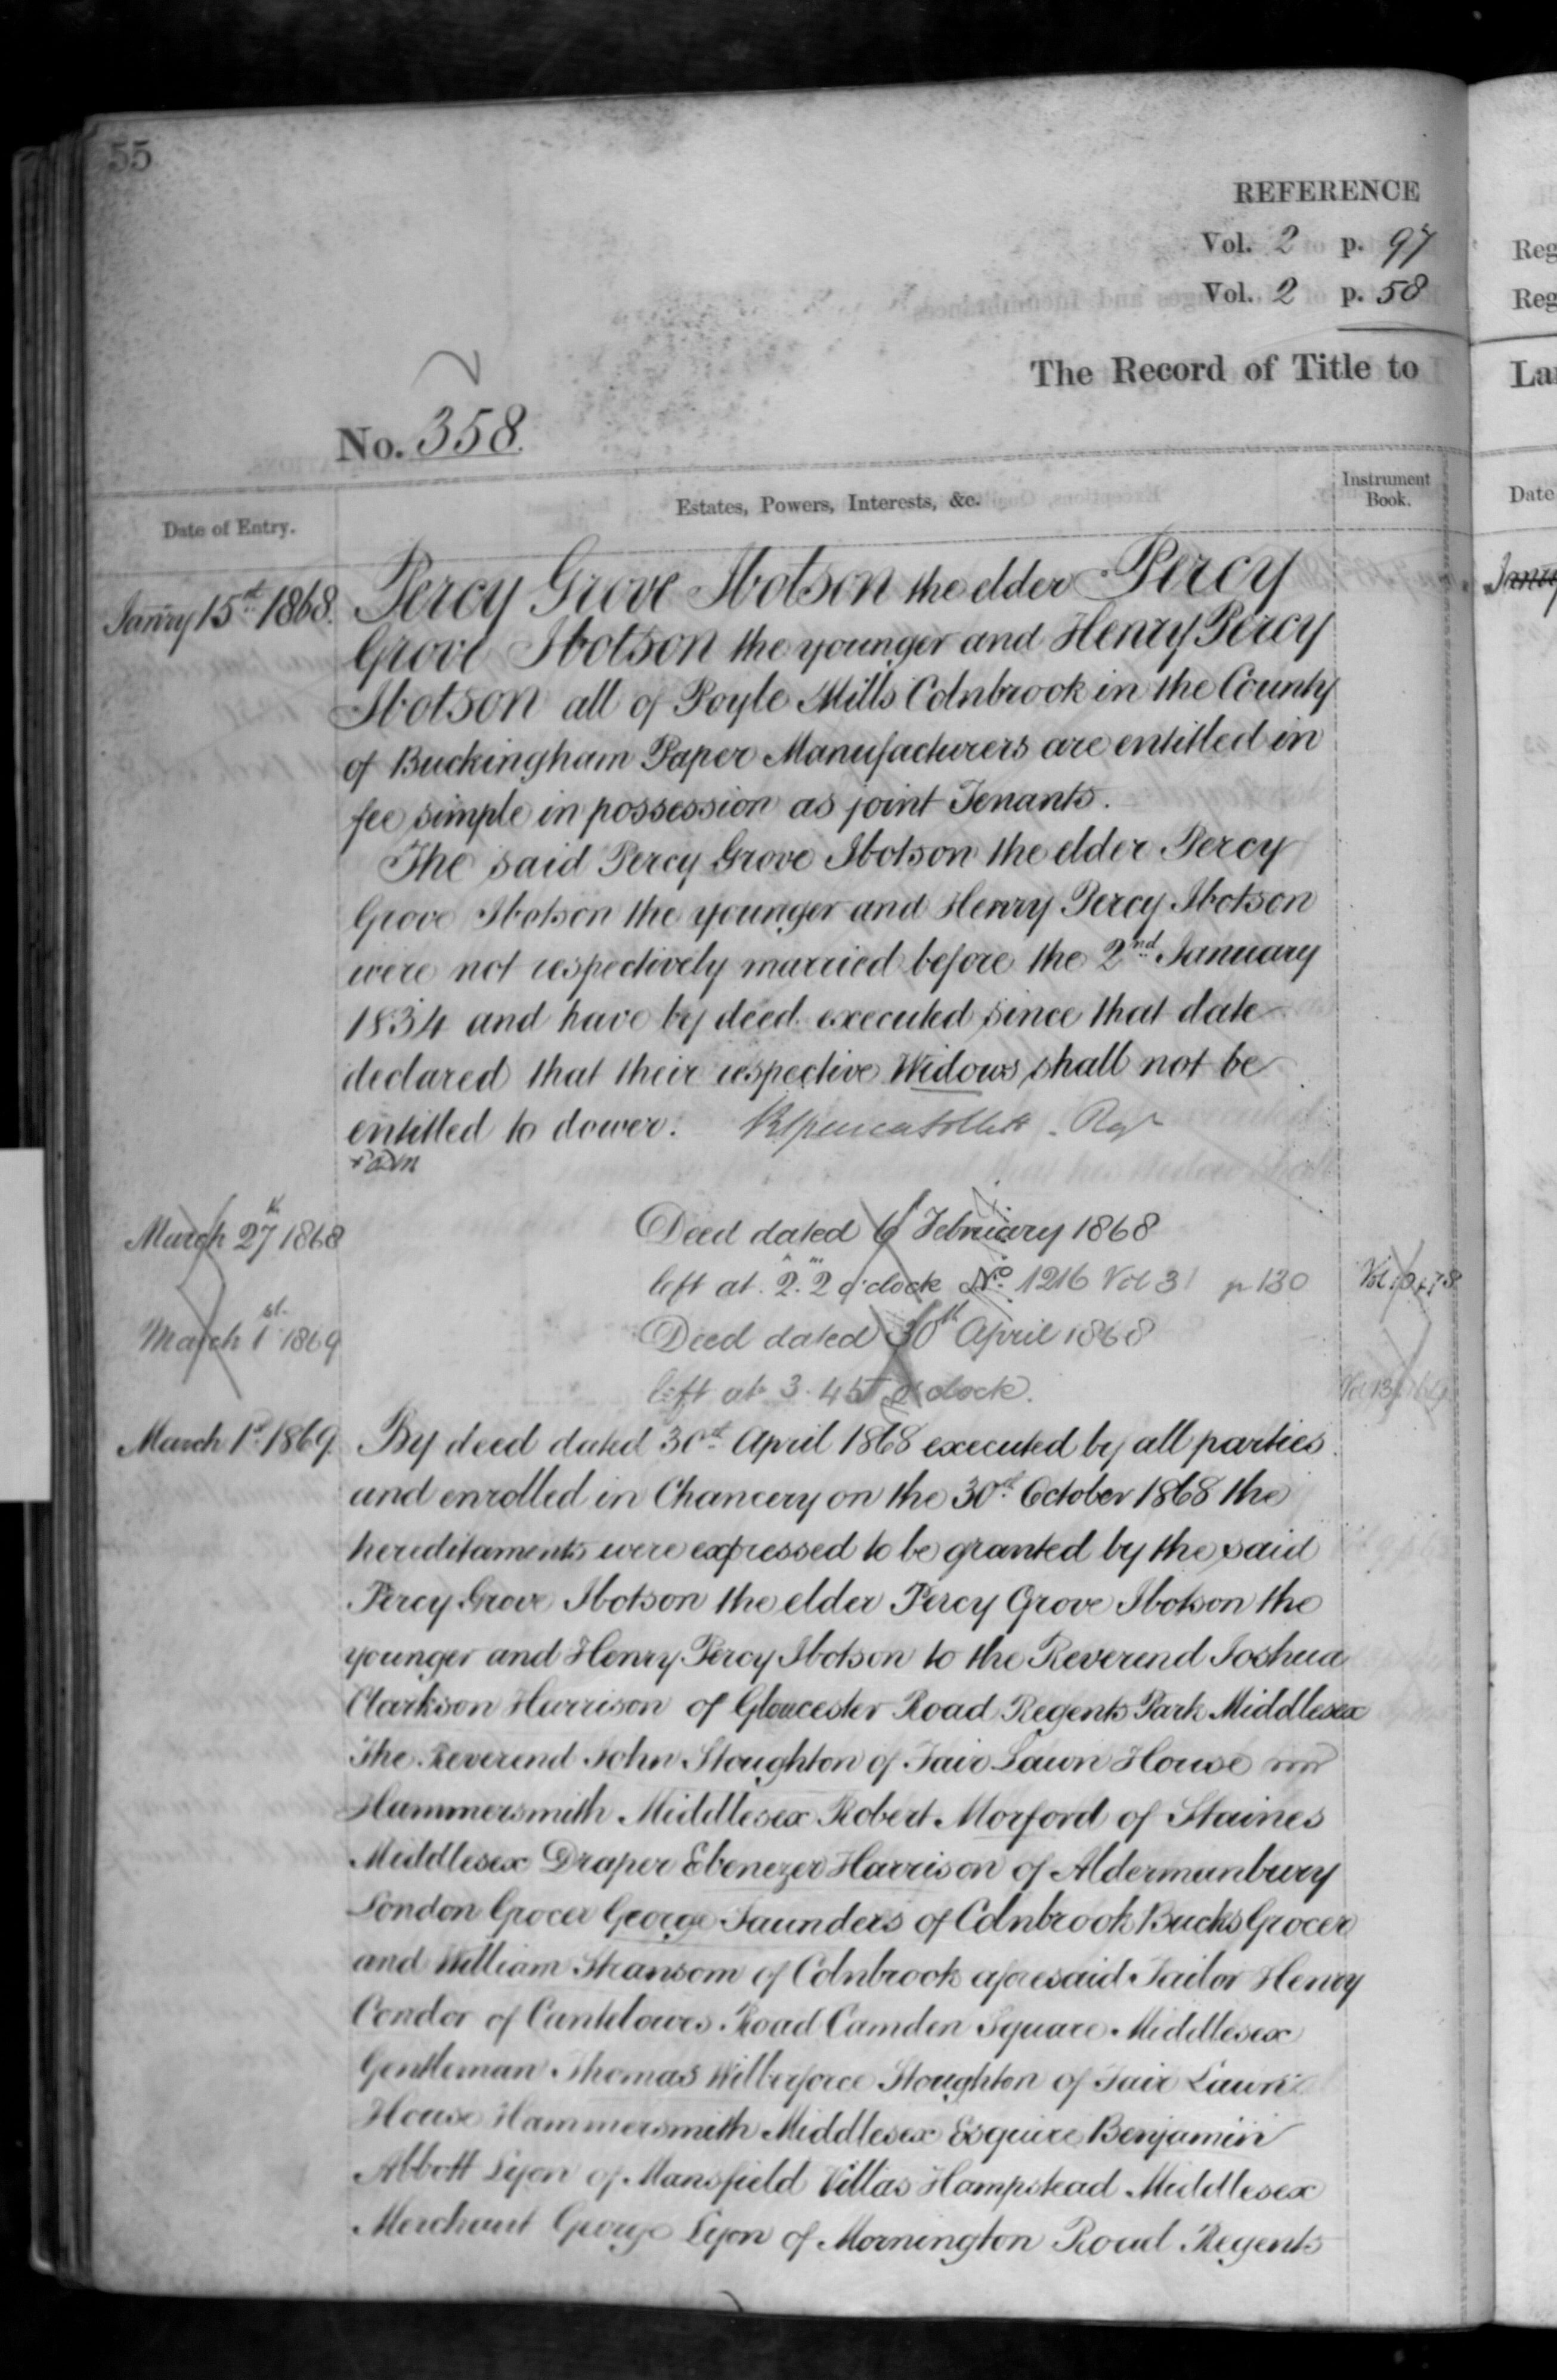 55
REFERENCE
Vol. 2 p. 97
Vol. 2 p. 58
The Record of Title to
No. 358.
Date of Entry.
Estates, Powers, Interests, &c.
Instrument Book.
Janry 15th 1868. Percy Grove Ibotson the elder Percy
Grove Ibotson the younger and Henry Percy
Ibotson all of Poyle Mills Colnbrook in the County
of Buckingham Paper Manufacturers are entitled in
fee simple in possession as joint Tenants.
The said Percy Grove Ibotson the elder Percy
Grove Ibotson the younger and Henry Percy Ibotson
were not respectively married before the 2nd January
1834 and have by deed executed since that date
declared that their respective Widows shall not be
entitled to dower.
March 27th 1868 Deed dated 6 February 1868
left at 2.2 o'clock No. 1216 Vol 31 p 130
March 1st 1869 Deed dated 30th April 1868
left at 3.45 o'clock.
March 1st 1869 By deed dated 30th April 1868 executed by all parties
and enrolled in Chancery on the 30th October 1868 the
hereditaments were expressed to be granted by the said
Percy Grove Ibotson the elder Percy Grove Ibotson the
younger and Henry Percy Ibotson to the Reverend Joshua
Clarkson Harrison of Gloucester Road Regents Park Middlesex
The Reverend John Stoughton of Fair Lawn House
Hammersmith Middlesex Robert Morford of Staines
Middlesex Draper Ebenezer Harrison of Aldermanbury
London Grocer George Saunders of Colnbrook Bucks Grocer
and William Transom of Colnbrook aforesaid Tailor Henry
Condor of Cantelowes Road Camden Square Middlesex
Gentleman Thomas Wilberforce Stoughton of Fair Lawn
House Hammersmith Middlesex Esquire Benjamin
Abbott Lyon of Mansfield Villas Hampstead Middlesex
Merchant George Lyon of Mornington Road Regents
Reg
Reg
La
Date